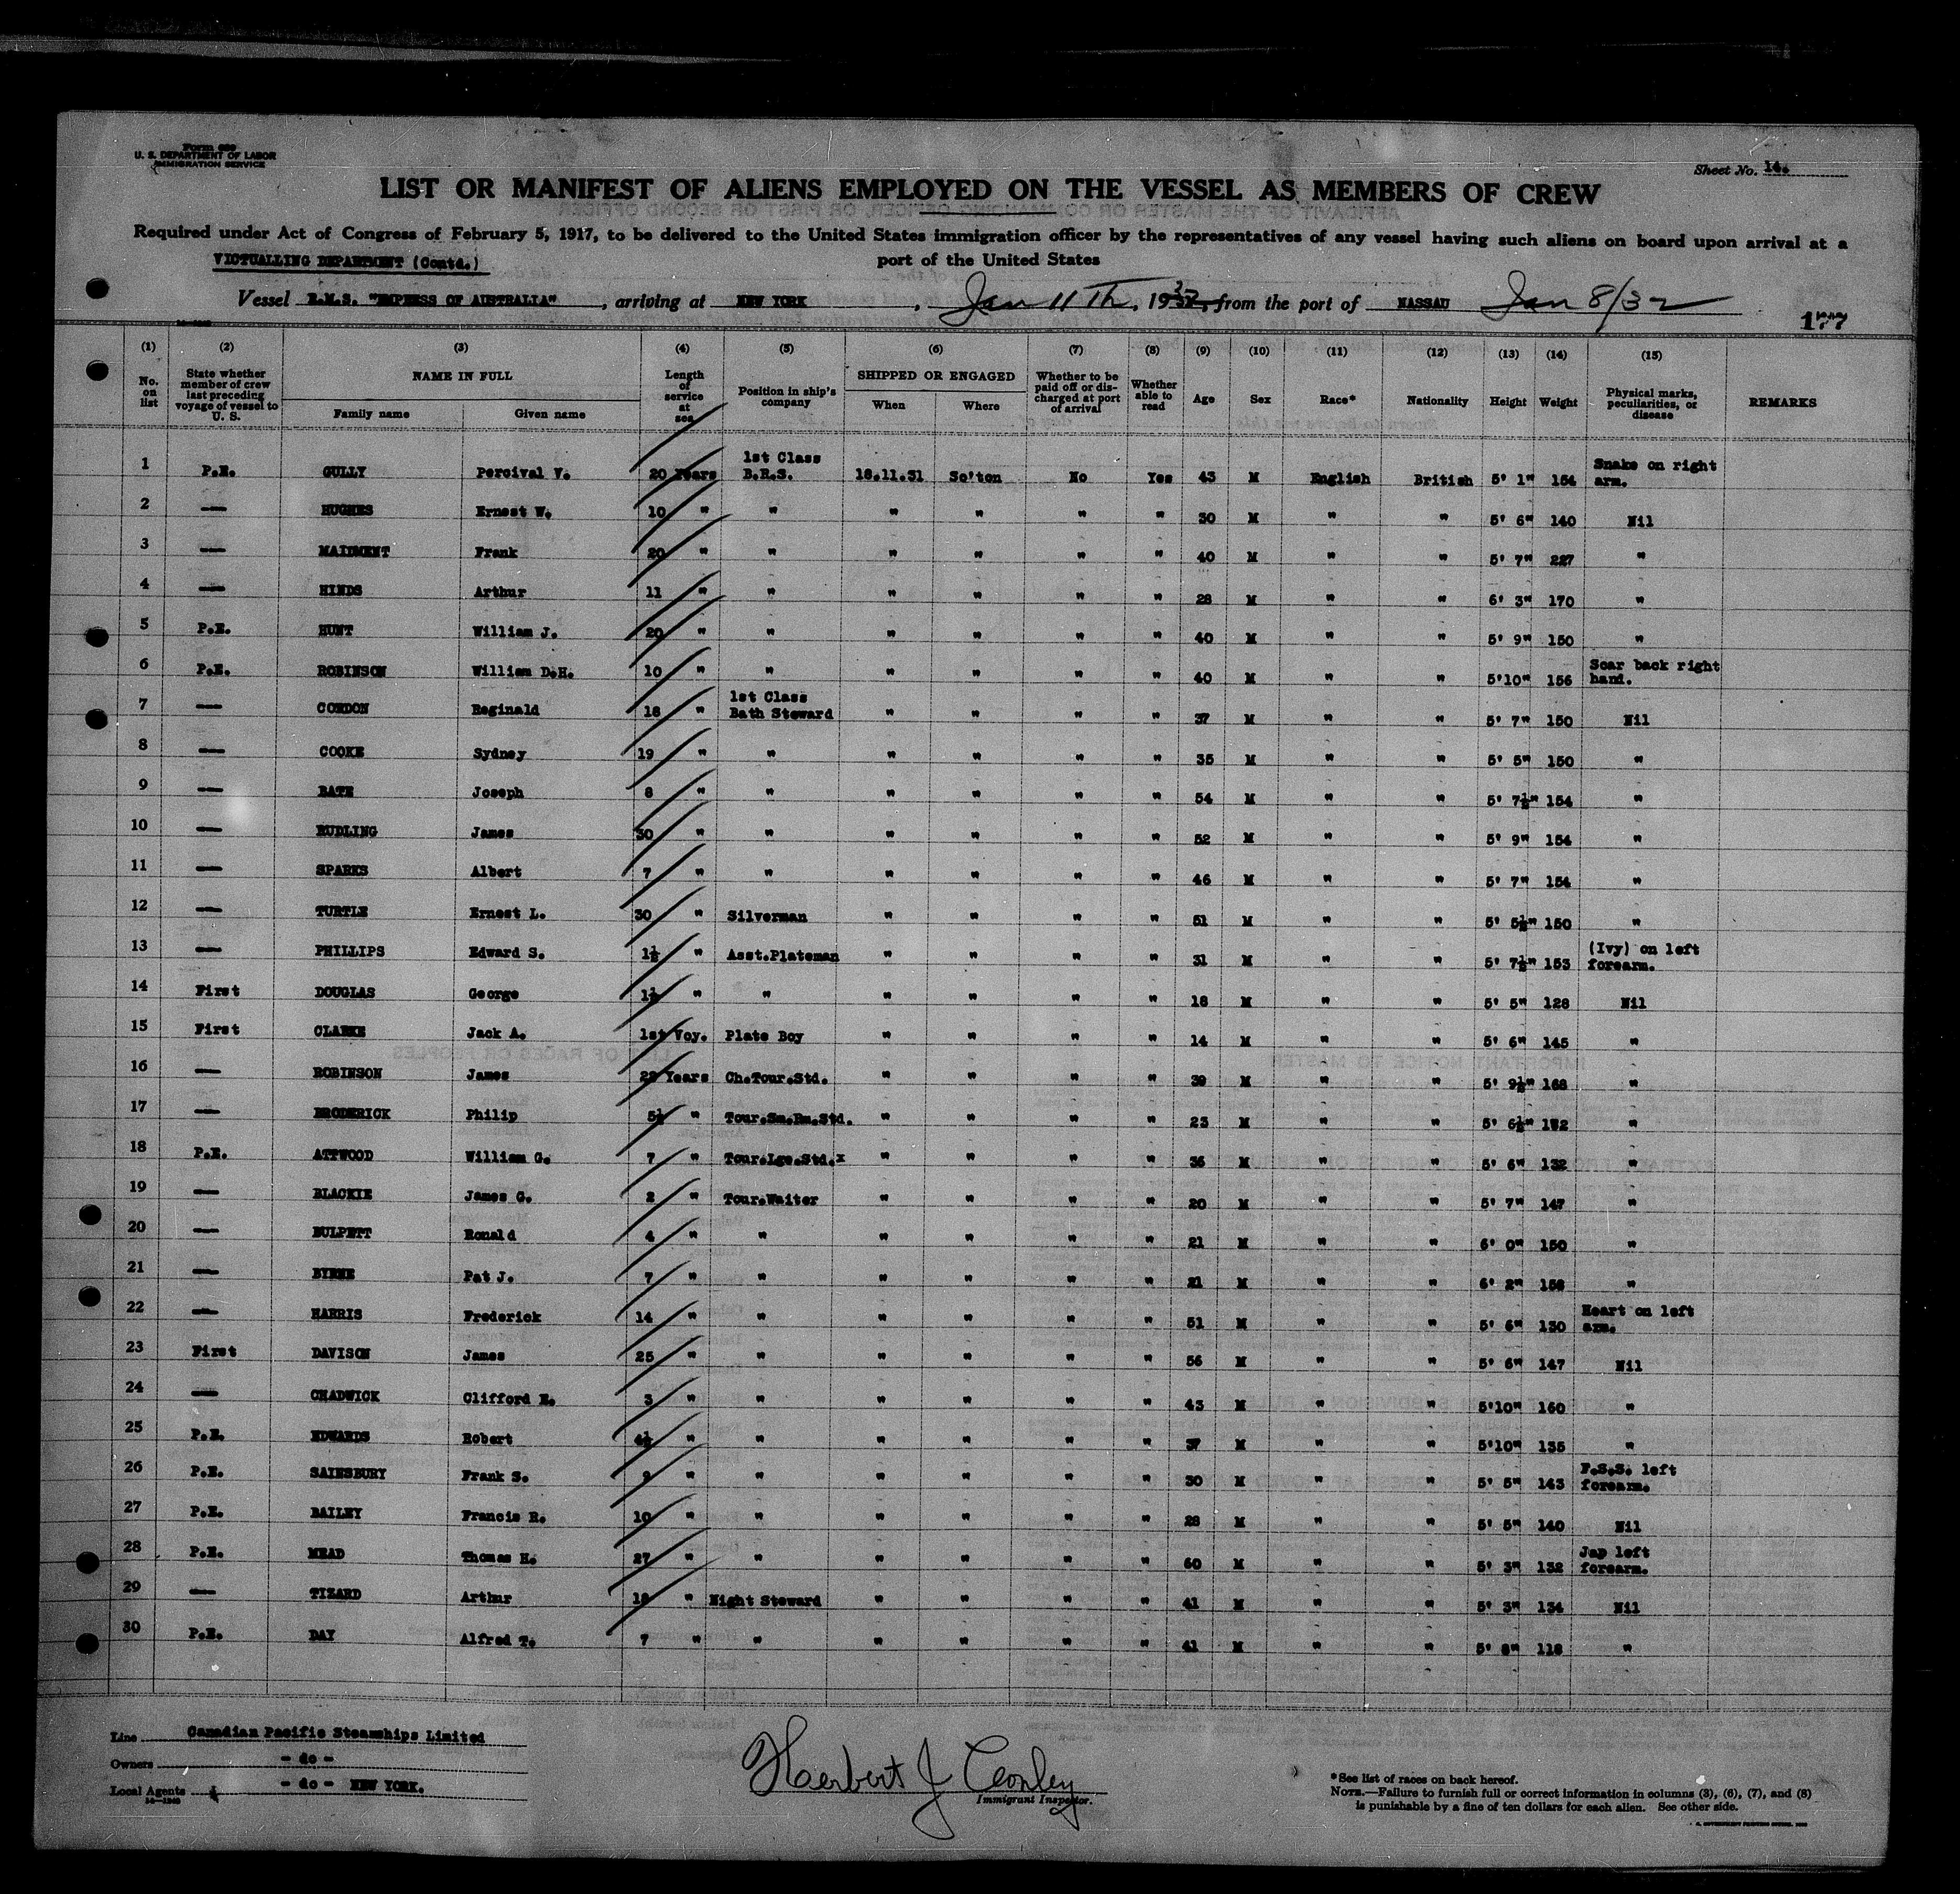 Form 689
U. S. DEPARTMENT OF LABOR
IMMIGRATION SERVICE
Sheet No. 14.
LIST OR MANIFEST OF ALIENS EMPLOYED ON THE VESSEL AS MEMBERS OF CREW
Required under Act of Congress of February 5, 1917, to be delivered to the United States immigration officer by the representatives of any vessel having such aliens on board upon arrival at a
port of the United States
VICTUALLING DEPARTMENT (Contd.)
Vessel R.M.S. "EMPRESS OF AUSTRALIA", arriving at NEW YORK, Jan 11th, 1932, from the port of NASSAU Jan 8/32
177
(1) (2) (3) (4) (5) (6) (7) (8) (9) (10) (11) (12) (13) (14) (15)
No. on list State whether member of crew last preceding voyage of vessel to U. S. NAME IN FULL Family name Given name Length of service at sea Position in ship's company SHIPPED OR ENGAGED When Where Whether to be paid off or discharged at port of arrival Whether able to read Age Sex Race* Nationality Height Weight Physical marks, peculiarities, or disease REMARKS
1 P.E. GULLY Percival V. 20 Years 1st Class B.R.S. 18.11.31 So'ton No Yes 43 M English British 5' 1" 154 Snake on right arm.
2 — HUGHES Ernest W. 10 " " " " " " 30 M " " 5' 6" 140 Nil
3 — MAIDMENT Frank 20 " " " " " " 40 M " " 5' 7" 227 "
4 — HINDS Arthur 11 " " " " " " 28 M " " 6' 3" 170 "
5 P.E. HUNT William J. 20 " " " " " " 40 M " " 5' 9" 150 "
6 P.E. ROBINSON William D.H. 10 " " " " " " 40 M " " 5'10" 156 Scar back right hand.
7 — CONDON Reginald 18 " 1st Class Bath Steward " " " " 37 M " " 5' 7" 150 Nil
8 — COOKE Sydney 19 " " " " " " 35 M " " 5' 5" 150 "
9 — BATE Joseph 8 " " " " " " 54 M " " 5' 7½" 154 "
10 — RUDLING James 30 " " " " " " 52 M " " 5' 9" 154 "
11 — SPARKS Albert 7 " " " " " " 46 M " " 5' 7" 154 "
12 — TURTLE Ernest L. 30 " Silverman " " " " 51 M " " 5' 5½" 150 "
13 — PHILLIPS Edward S. 1½ " Asst.Plateman " " " " 31 M " " 5' 7½" 153 (Ivy) on left forearm.
14 First DOUGLAS George 1½ " " " " " " 18 M " " 5' 5" 128 Nil
15 First CLARKE Jack A. 1st Voy. Plate Boy " " " " 14 M " " 5' 6" 145 "
16 — ROBINSON James 22 Years Ch.Tour.Std. " " " " 39 M " " 5' 9½" 168 "
17 — BRODERICK Philip 5½ " Tour.Sm.Rm.Std. " " " " 23 M " " 5' 6½" "
18 P.E. ATTWOOD William G. 7 " Tour.Lge.Std.x " " " " 36 M " " 5' 6" 132 "
19 — BLACKIE James G. 2 " Tour.Waiter " " " " 20 M " " 5' 7" 147 "
20 — BULPETT Ronald 4 " " " " " " 21 M " " 6' 0" 150 "
21 — BYRNE Pat J. 7 " " " " " " 21 M " " 6' 2" 158 "
22 — HARRIS Frederick 14 " " " " " " 51 M " " 5' 6" 130 Heart on left arm.
23 First DAVISON James 25 " " " " " " 56 M " " 5' 6" 147 Nil
24 — CHADWICK Clifford E. 3 " " " " " " 43 M " " 5'10" 160 "
25 P.E. EDWARDS Robert 4½ " " " " " " 37 M " " 5'10" 135 "
26 P.E. SAINSBURY Frank S. 9 " " " " " " 30 M " " 5' 5" 143 F.S.S. left forearm.
27 P.E. BAILEY Francis R. 10 " " " " " " 28 M " " 5' 5" 140 Nil
28 P.E. MEAD Thomas H. 27 " " " " " " 60 M " " 5' 3" 132 Jap left forearm.
29 — TIZARD Arthur 18 " Night Steward " " " " 41 M " " 5' 3" 134 Nil
30 P.E. DAY Alfred T. 7 " " " " " " 41 M " " 5' 8" 118 "
Line Canadian Pacific Steamships Limited
Owners - do -
Local Agents - do - NEW YORK.
Herbert J Conley
Immigrant Inspector.
*See list of races on back hereof.
NOTE.—Failure to furnish full or correct information in columns (3), (6), (7), and (8)
is punishable by a fine of ten dollars for each alien. See other side.